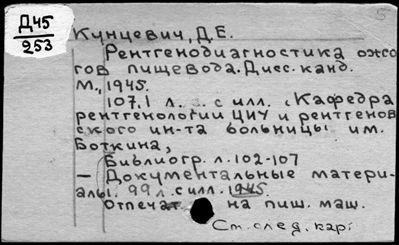 Д45
253
5
Кунцевич, Д.Е.
Рентгенодиагностика ожо-
гов пищевода. Дисс. канд.
М., 1945.
107,1 л. с илл. (Кафедра
рентгенологии ЦИУ и рентгенов
ского ин-та больницы им.
Боткина,
Библиогр. л. 102-107
— Документальные матери-
алы. 99 л. с илл. 1945.
Отпечат. на пиш. маш.
См. след. кар.